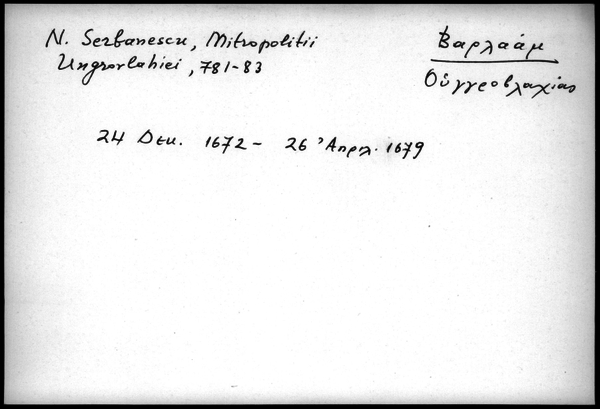 N. Serbanescu, Mitropolitii
Ungrovlahiei, 781-83
Βαρλαάμ
Οὑγγροβλαχίας
24 Δεκ. 1672 - 26 Ἀπρλ. 1679